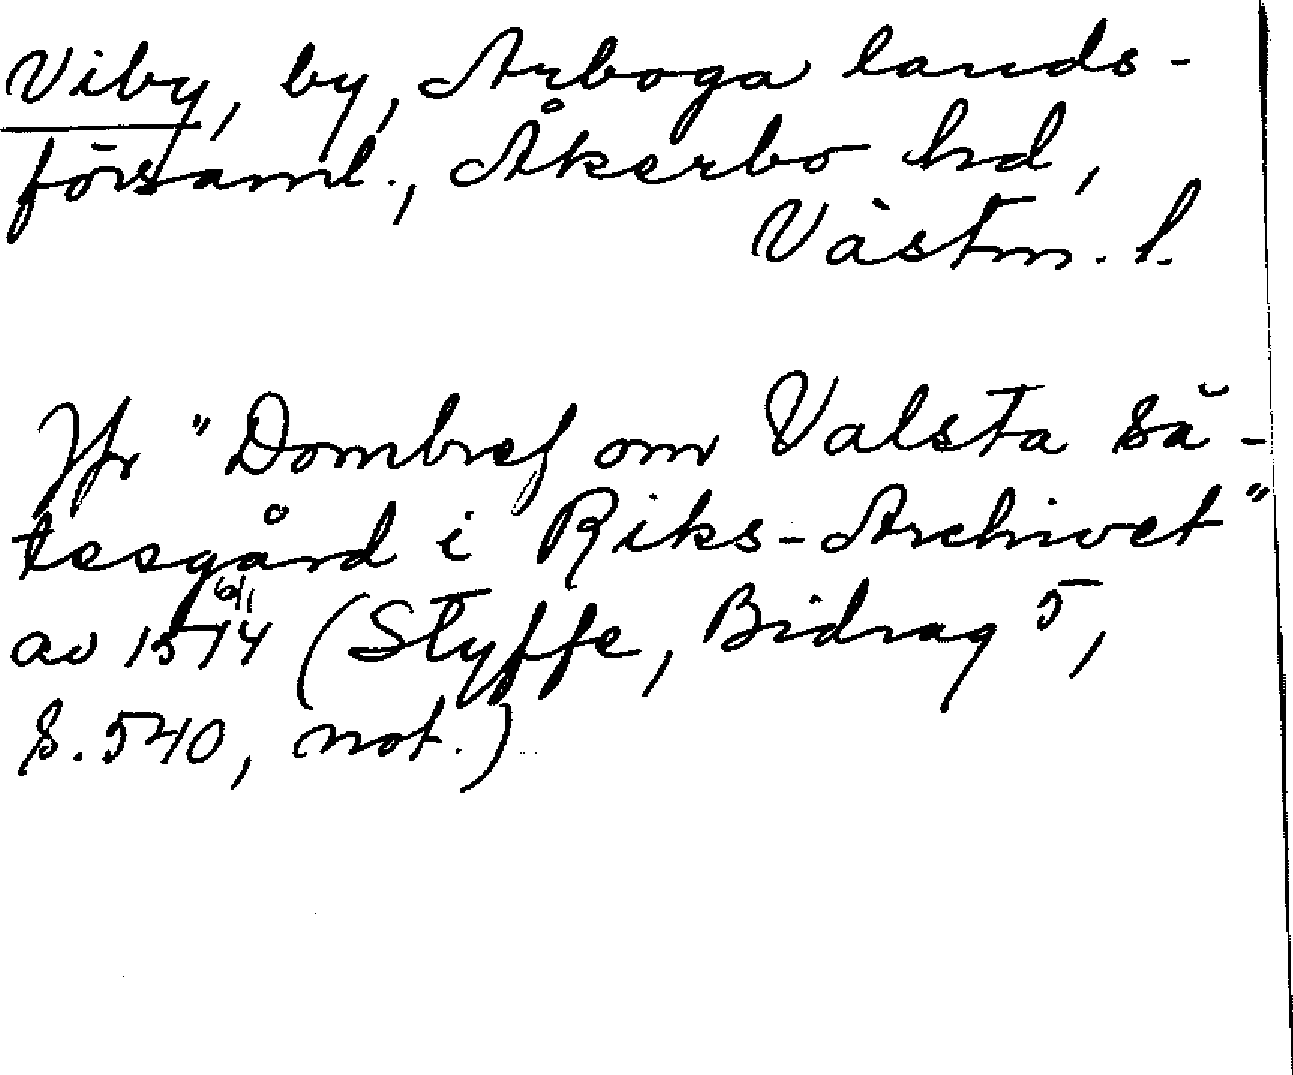 Viby, by, Arboga lands-
församl., Åkerbo hd,
Västm. l.
Jfr "Dombref om Valsta sä-
tesgård i Riks-Archivet"
av 1514 6/1 (Styffe, Bidrag 5,
s. 540, not.)